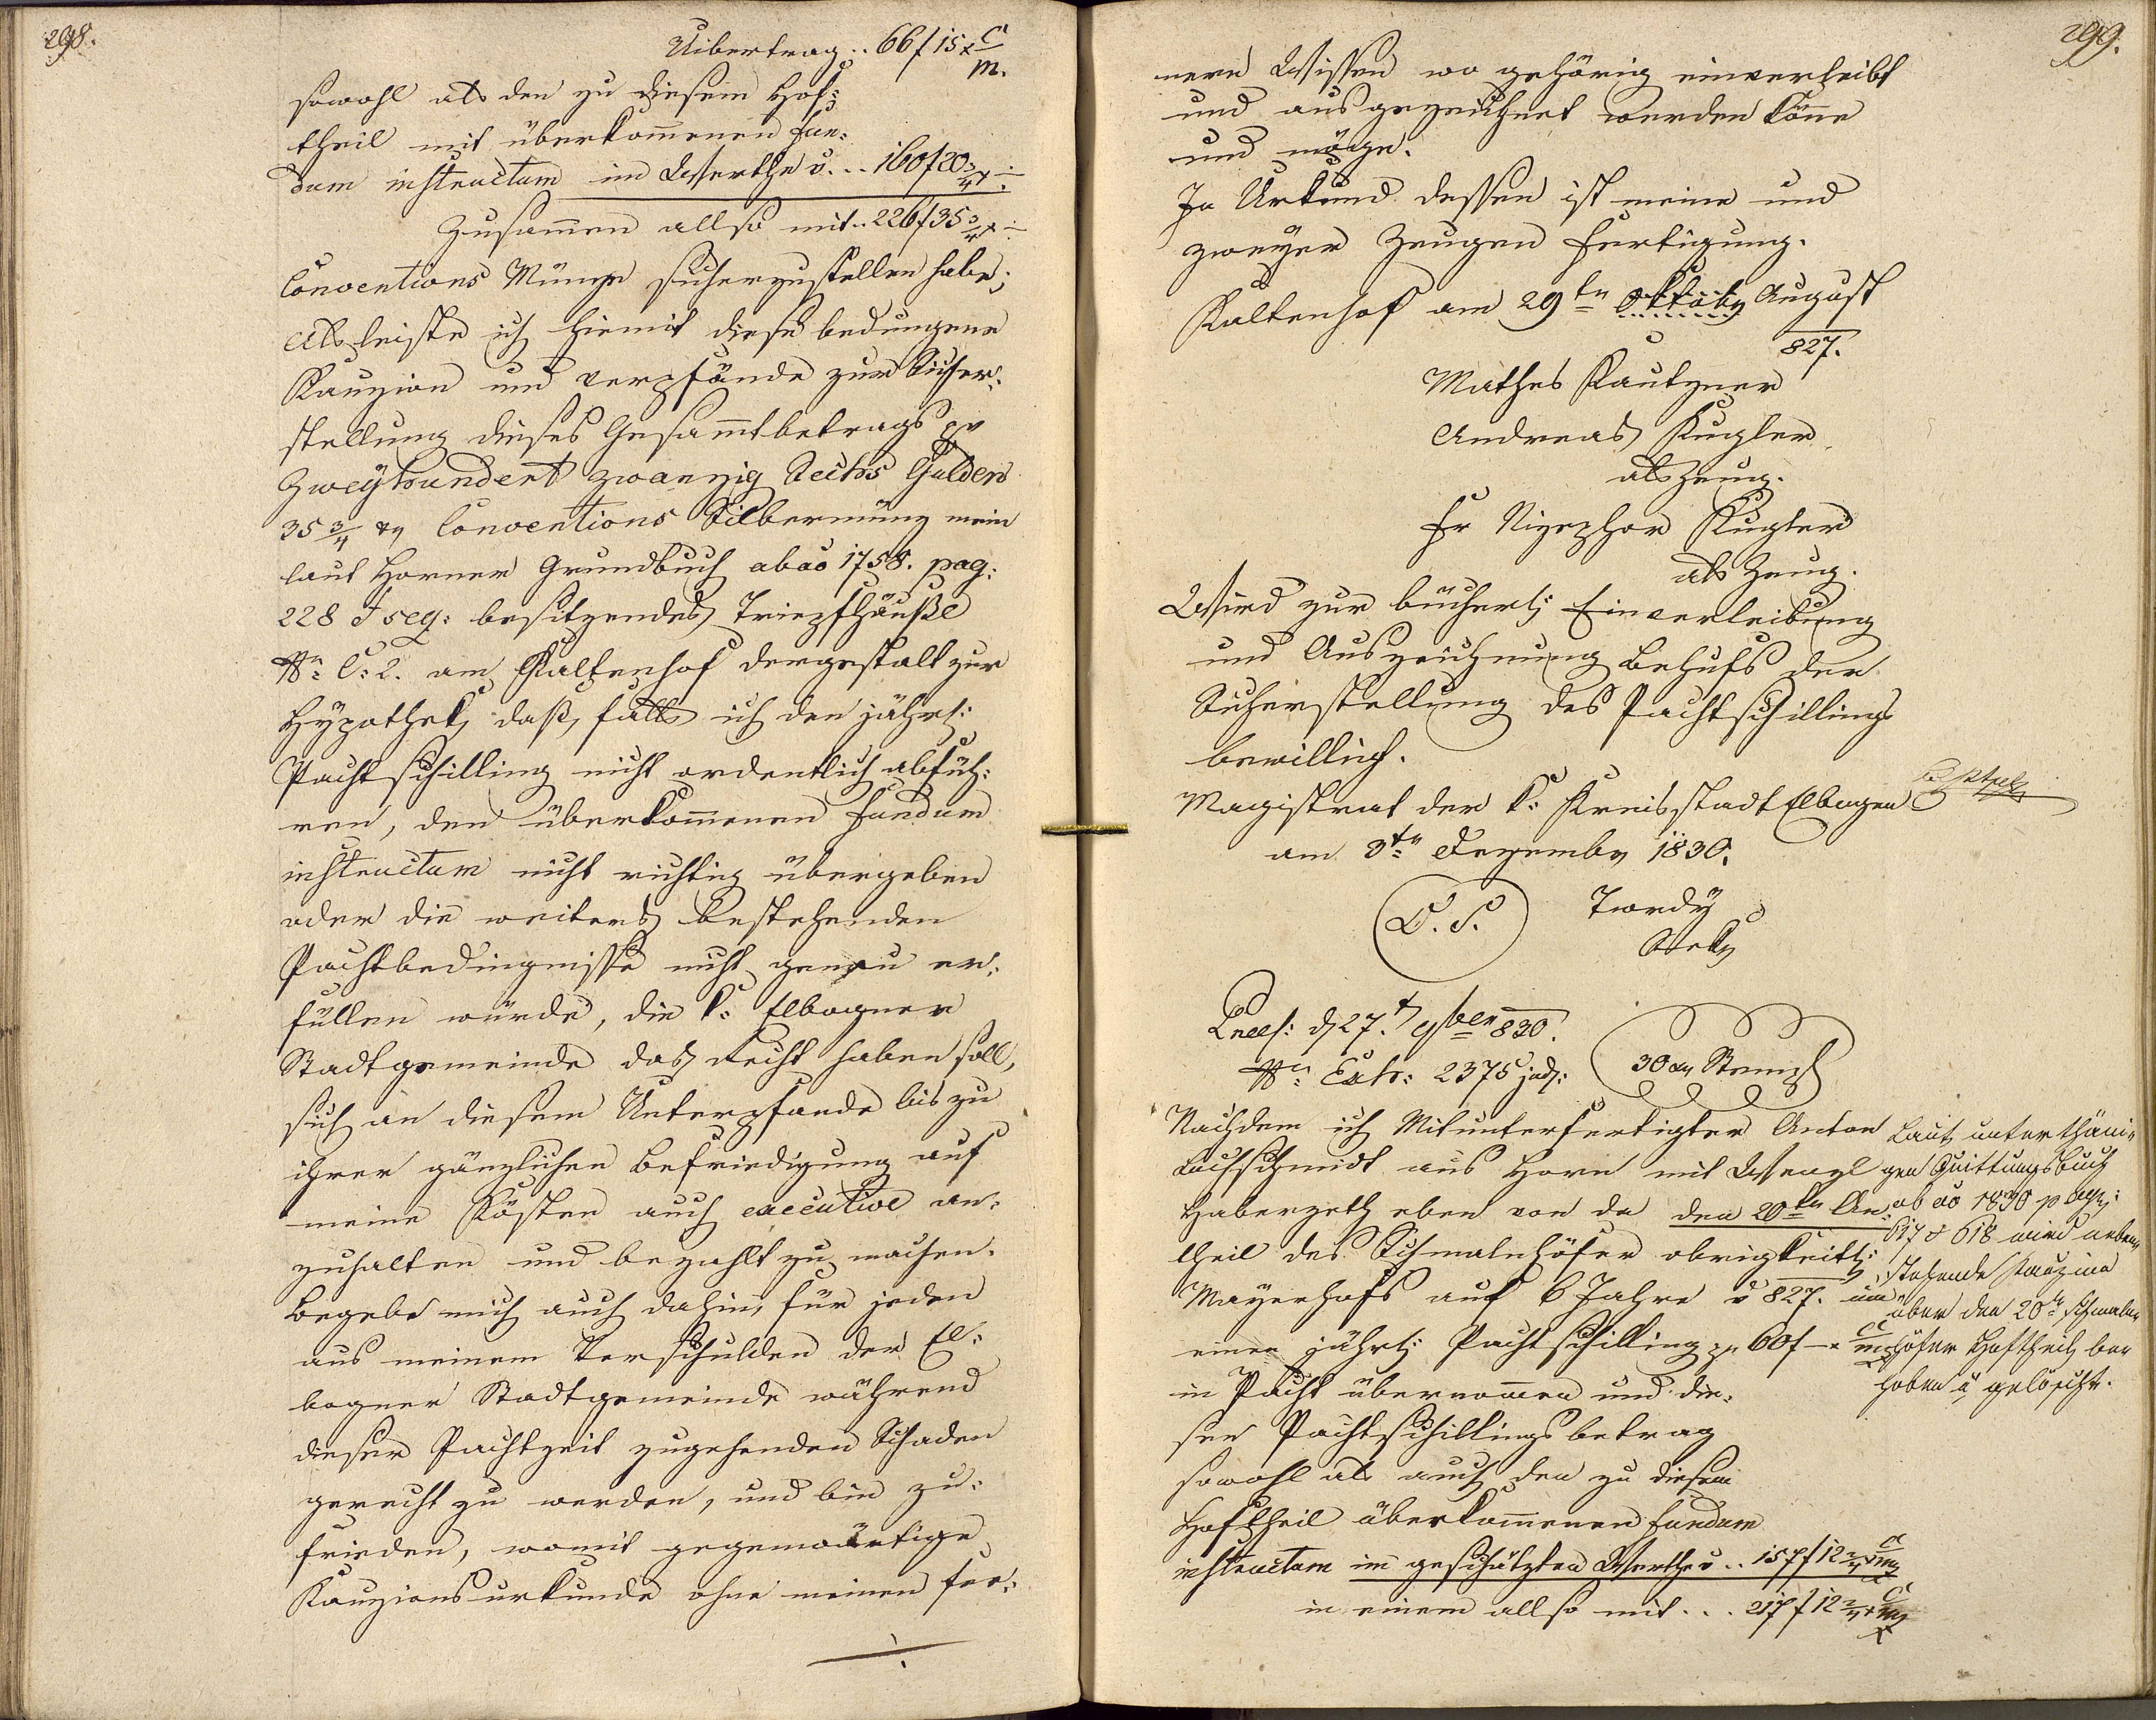 298.
Uibertrag .. 66 f 15 x C
M.
sowohl als den zu diesem Hof:
theil mit überkom̄enen Fun:
dum instructum im Werthe v. .. 160 f 20 3/4 x ÷
Zusam̄en allso mit .. 226 f 35 3/4 x ÷
Conventions Münze sicherzustellen habe;
Als leiste ich hiemit diese bedungene
Kauzion und verpfände zur Sicher:
stellung dieses Gesam̄tbetrags pr
Zweyhundert zwanzig Sechs Gulden
35 3/4 xr Conventions Silbermünz mein
laut Horner Grundbuch ab ao 1758. pag:
228 & seq: besitzendes Tripfhäußl
Nr: C: 2. am Kaltenhof dergestalt zur
Hypothek, daß, falls ich den jährl:
Pachtschilling nicht ordentlich abfüh:
ren, den überkom̄enen Fundum
instructum nicht richtig übergeben
oder die weiters bestehenden
Pachtbedingnisse nicht genau er:
füllen würde, die k: Elbogner
Stadtgemeinde das Recht haben soll,
sich an diesem Unterpfande bis zu
ihrer gänzlichen Befriedigung auf
meine Kösten auch executive an:
zuhalten und bezahlt zu machen.
Begebe mich auch dahin, für jeden
aus meinem Verschulden der El:
bogner Stadtgemeinde während
dieser Pachtzeit zugehenden Schaden
gerecht zu werden, und bin zu:
frieden, womit gegenwärtige
Kauzionsurkunde ohne meinen fer:
299.
nern Wissen wo gehörig einverleibt
und ausgezeichnet werden kön̄e
und möge.
In Urkund dessen ist meine und
zweyer Zeugen Fertigung.
Kaltenhof am 29tn Oktobr August
827.
Mathes Kautzner
Andreas Kugler
als Zeug.
Fr Nizephor Kugler
als Zeug.
Wird zur bücherl: Einverleibung
und Auszeichnung Behufs der
Sicherstellung des Pachtschillings
bewilligt.
Magistrat der k: Kreisstadt Elbogen
am 3tn Dezembr 1830.
L. S. Twrdy
Sekr
Praes: d 27.t 9ber 830.
Nr: Exh: 2375 jud:
30 xr Stempl
Nachdem ich Mitunterfertigter Anton
Lochschmidt aus Horn mit Wenzl
Haberzeth eben von da den 20tn An:
theil des Schmalnhöfer obrigkeitl:
Mayerhofs auf 6 Jahre v 827. um
einen jährl: Pachtschilling pr 60 f – x C M
in Pacht übernom̄en und die:
sen Pachtschillingsbetrag
sowohl als auch den zu diesem
Hoftheil überkom̄enen Fundum
instructum im geschätzten Werthe v .. 157 f 12 2/4 x C M
in einem allso mit ... 217 f 12 2/4 x C M
Laut unterthäni:
gen Quittungsbuch
ab ao 1830 pag:
617 & 618 wird neben
stehende Kauzion
über den 20tn Schmaln
höfer Hoftheil be
hoben u gelöscht.